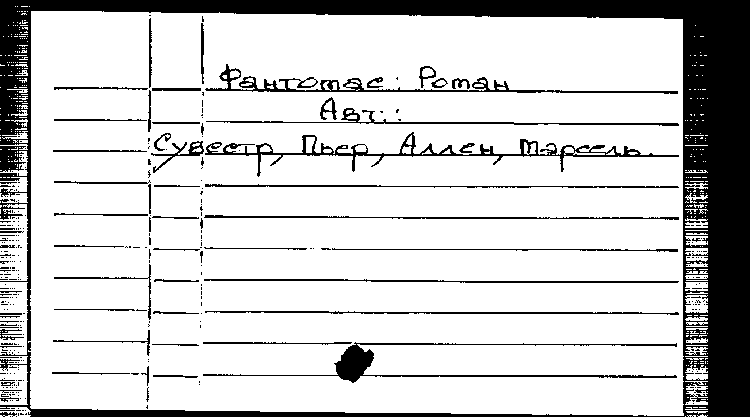 Фантомас: Роман
Авт.:
Сувестр, Пьер, Аллен, Марсель.